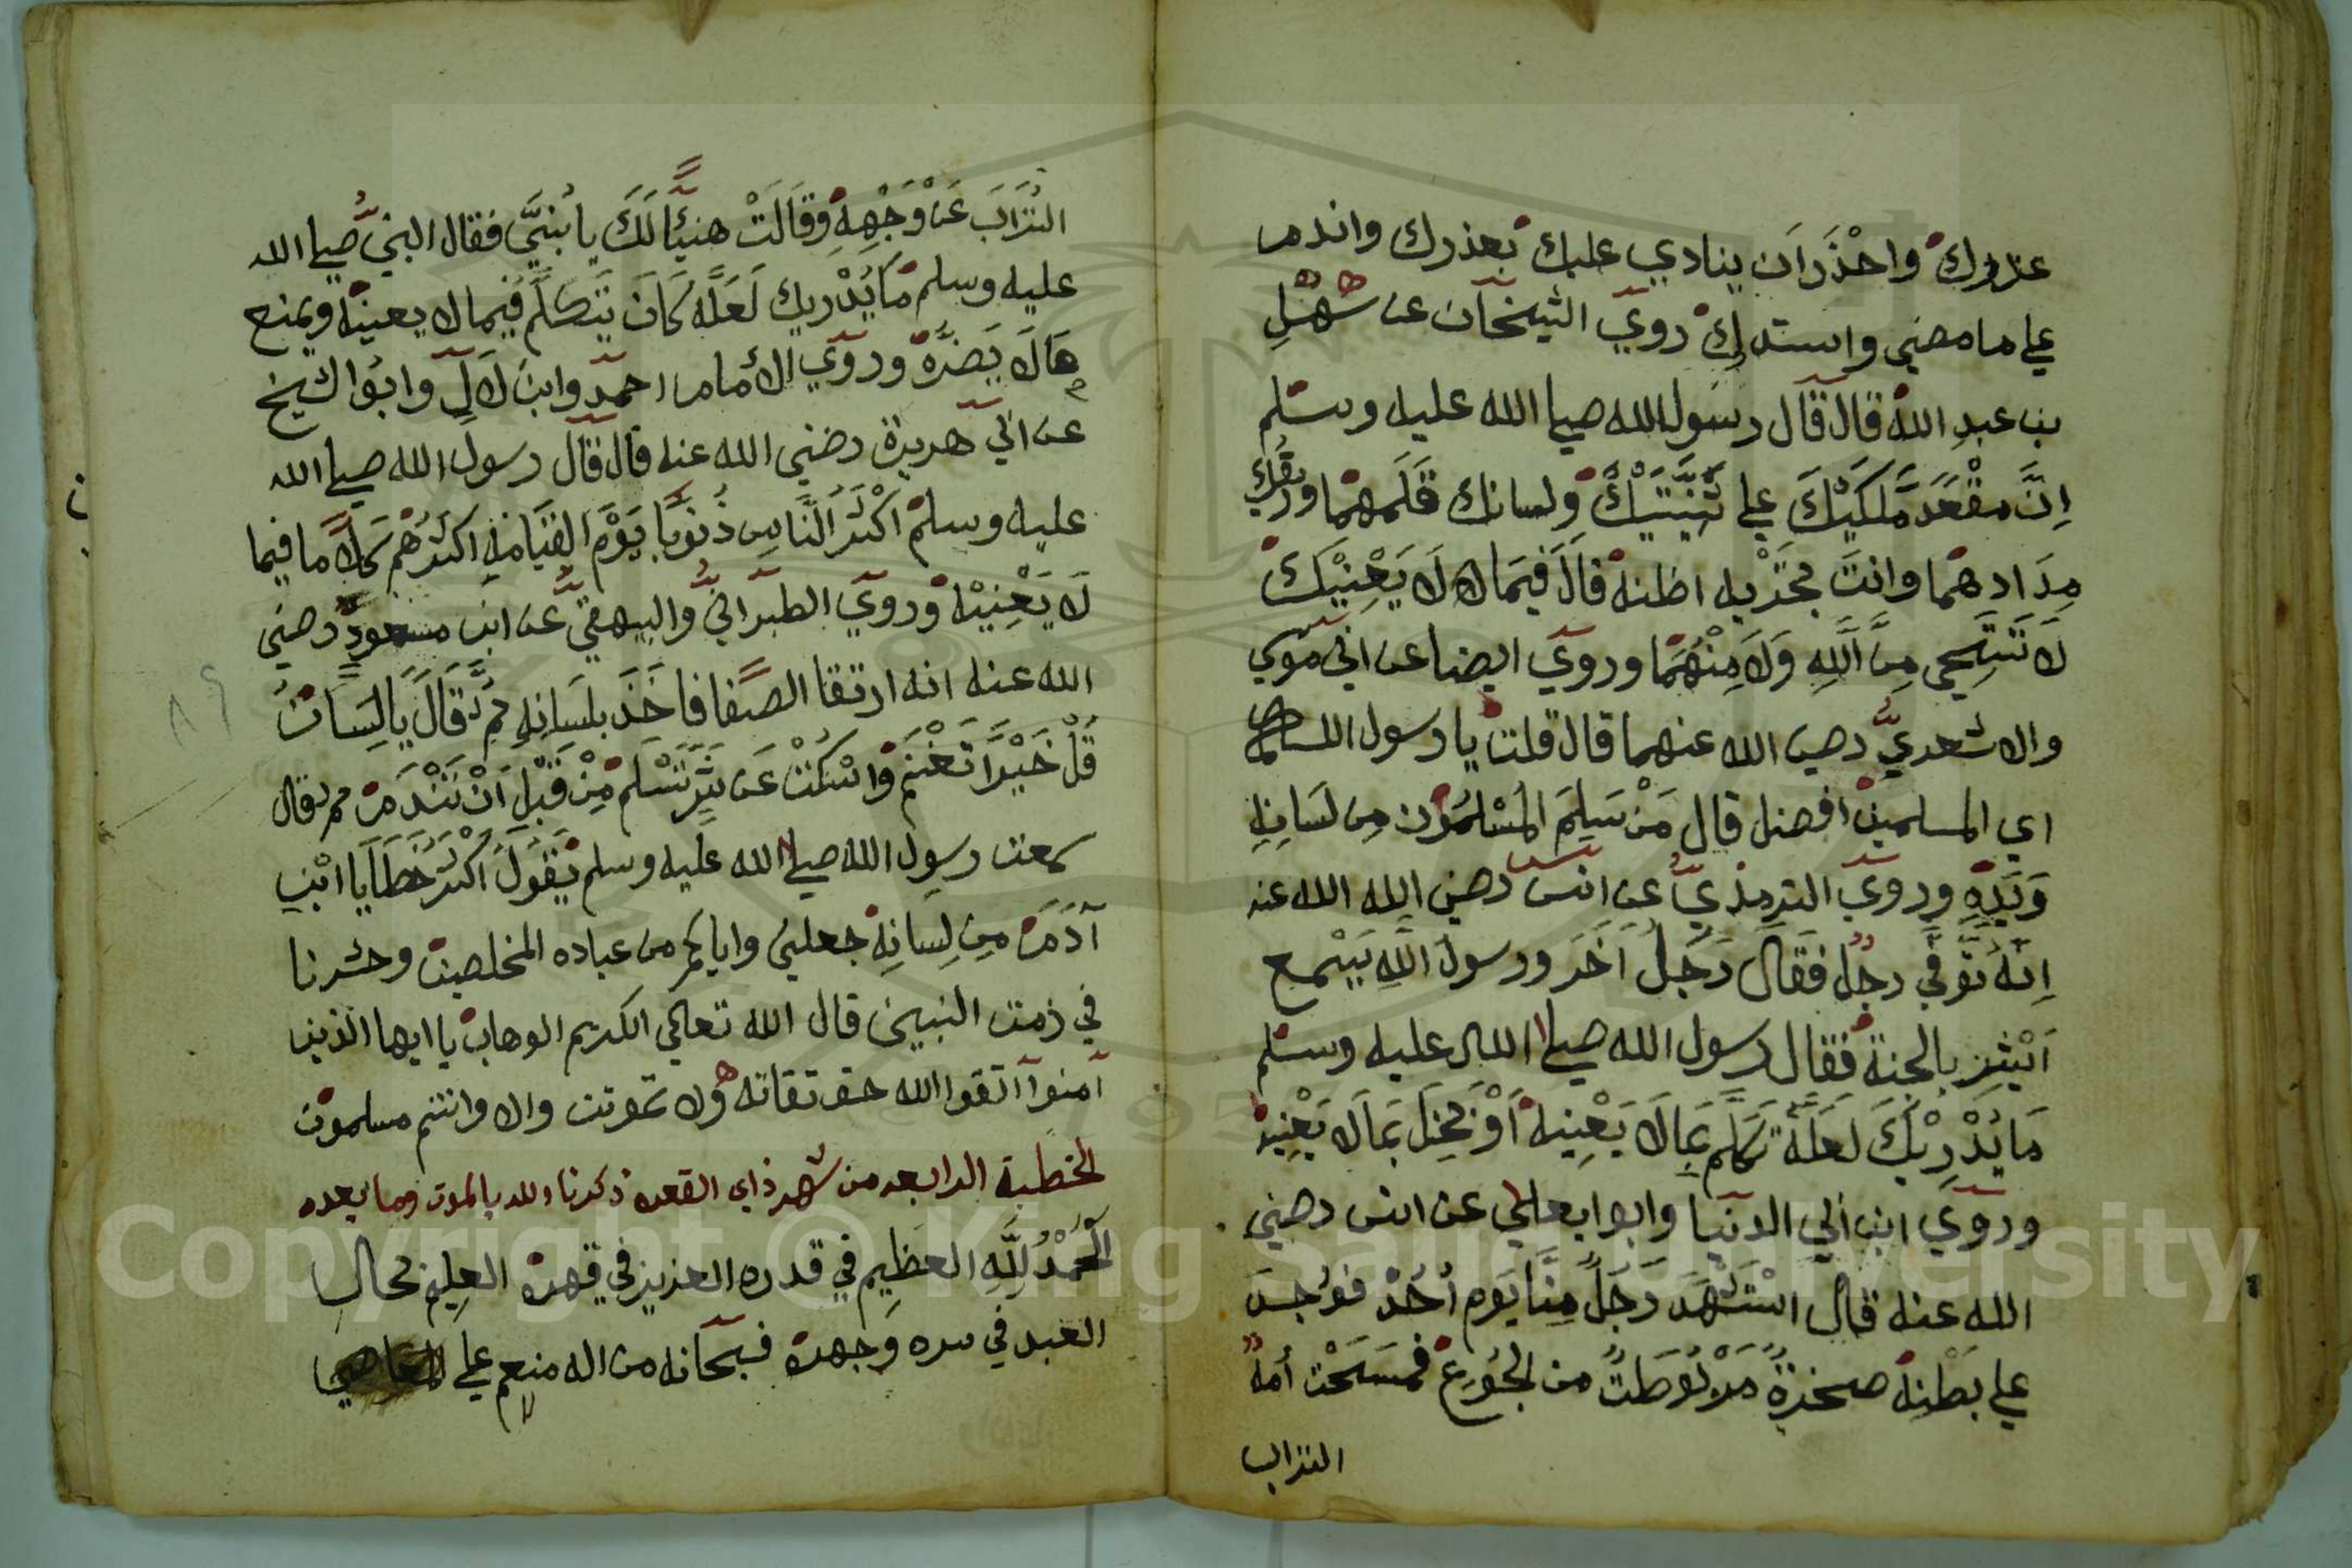 غرورك واحذر ان ينادي عليك بعذرك واندم
علي ما مضي واستدرك روي الشيخان عن سهل
بن عبد الله قال قال رسول الله صلي الله عليه وسلم
ان مقعد ملكيك علي ثنيتيك ولسانك قلمهما وريقك
مدادهما وانت تجري به اظنه قال فيما لا يعنيك
لا تستحي من الله ولا منهما وروي ايضا عن ابي موسي
والاشعري رضي الله عنهما قال قلت يا رسول الله
اي المسلمين افضل قال من سلم المسلمون من لسانه
ويده وروي الترمذي عن انس رضي الله الله عنه
انه توفي رجل فقال رجل اخر ورسول الله يسمع
ابشر بالجنة فقال رسول الله صلي الله عليه وسلم
ما يدريك لعله تكلم بما لا يعنيه او بخل بما لا يعنيه
وروي ابن ابي الدنيا وابوا يعلي عن انس رضي
الله عنه قال استشهد رجل منا يوم احد فوجد
علي بطنه صخرة مربوطت من الجوع فمسحت امه
التراب
التراب عن وجهه وقالت هنيئا لك يا بني فقال النبي صلي الله
عليه وسلم ما يدريك لعله كان يتكلم فيما لا يعينه ويمنع
ما لا يضره وروي الامام احمد وابن لال وابوا الشيخ
عن ابي هريرة رضي الله عنه قال قال رسول الله صلي الله
عليه وسلم اكثر الناس ذنوبا يوم القيامة اكثرهم كلاما فيما
لا يعنيه وروي الطبراني والبيهقي عن ابن مسعود رضي
الله عنه انه ارتقا الصفا فاخذ بلسانه ثم قال يا لسان
قل خيرا تغنم واسكت عن شر تسلم من قبل ان تندم ثم قال
سمعت رسول الله صلي الله عليه وسلم يقول اكثر خطايا ابن
آدم من لسانه جعلني واياكم من عباده المخلصين وحشرنا
في زمت النبين قال الله تعالي الكريم الوهاب يا ايها الذين
آمنوا اتقوا الله حق تقاته ولا تموتن والا وانتم مسلمون
الخطبة الرابعه من شهر ذاي القعده ذكرنا الله بالموت وما بعده
الحمد لله العظيم في قدره العزيز في قهره العليم بحال
العبد في سره وجهره فسبحانه من اله منعم علي المعاصي
Copyright © King Saud University